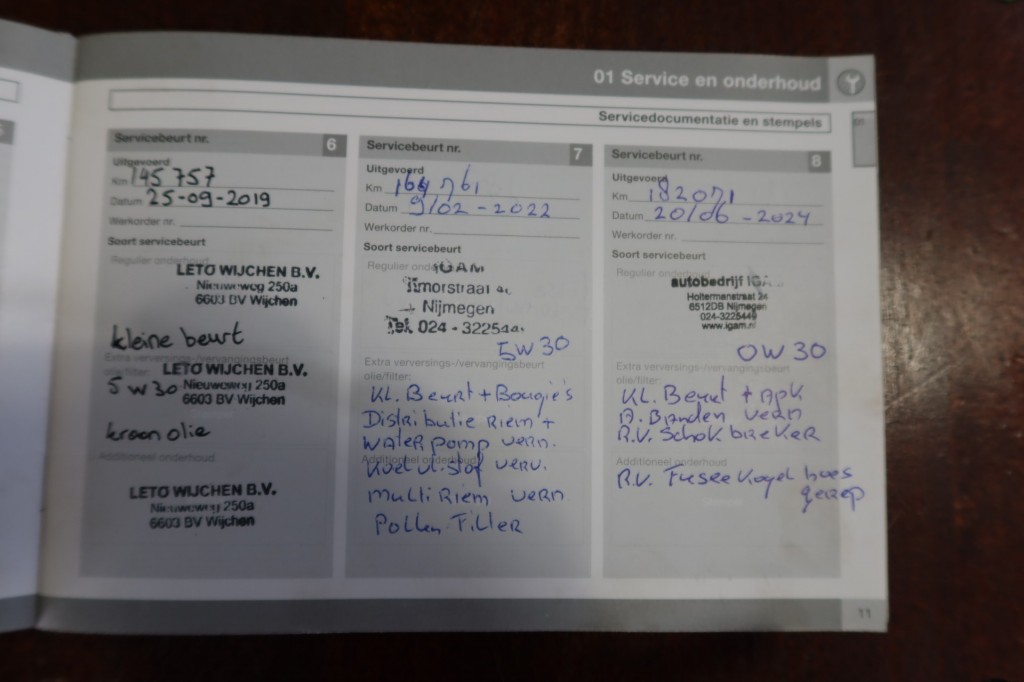 01 Service en onderhoud
Servicedocumentatie en stempels
Servicebeurt nr. 6
Uitgevoerd
Km 145 757
Datum 25-09-2019
Werkorder nr.
Soort servicebeurt
Regulier onderhoud
LETO WIJCHEN B.V.
Nieuweweg 250a
6603 BV Wijchen
kleine beurt
Extra verversings-/vervangingsbeurt
olie/filter:
LETO WIJCHEN B.V.
5W30 Nieuweweg 250a
6603 BV Wijchen
kroon olie
Additioneel onderhoud
LETO WIJCHEN B.V.
Nieuweweg 250a
6603 BV Wijchen
Servicebeurt nr. 7
Uitgevoerd
Km 164 761
Datum 9/02-2022
Werkorder nr.
Soort servicebeurt
Regulier
IGAM
Timorstraat
Nijmegen
Tel. 024 - 32254
5W30
Extra verversings-/vervangingsbeurt
olie/filter:
KL. Beurt + Bougie's
Distributie Riem +
Waterpomp vern.
Additioneel onderhoud
Koelvl.stof verv.
Multi Riem vern
Pollen Filter
Servicebeurt nr. 8
Uitgevoerd
Km 182071
Datum 20/06-2024
Werkorder nr.
Soort servicebeurt
Regulier onderhoud
autobedrijf
Holtermanstraat 24
6512DB Nijmegen
024-3225449
www.igam.nl
0W30
Extra verversings-/vervangingsbeurt
olie/filter:
KL. Beurt + APK
A. Banden vern
R.V. Schokbreker
Additioneel onderhoud
R.V. Fuseekogel hoes
gerep
11